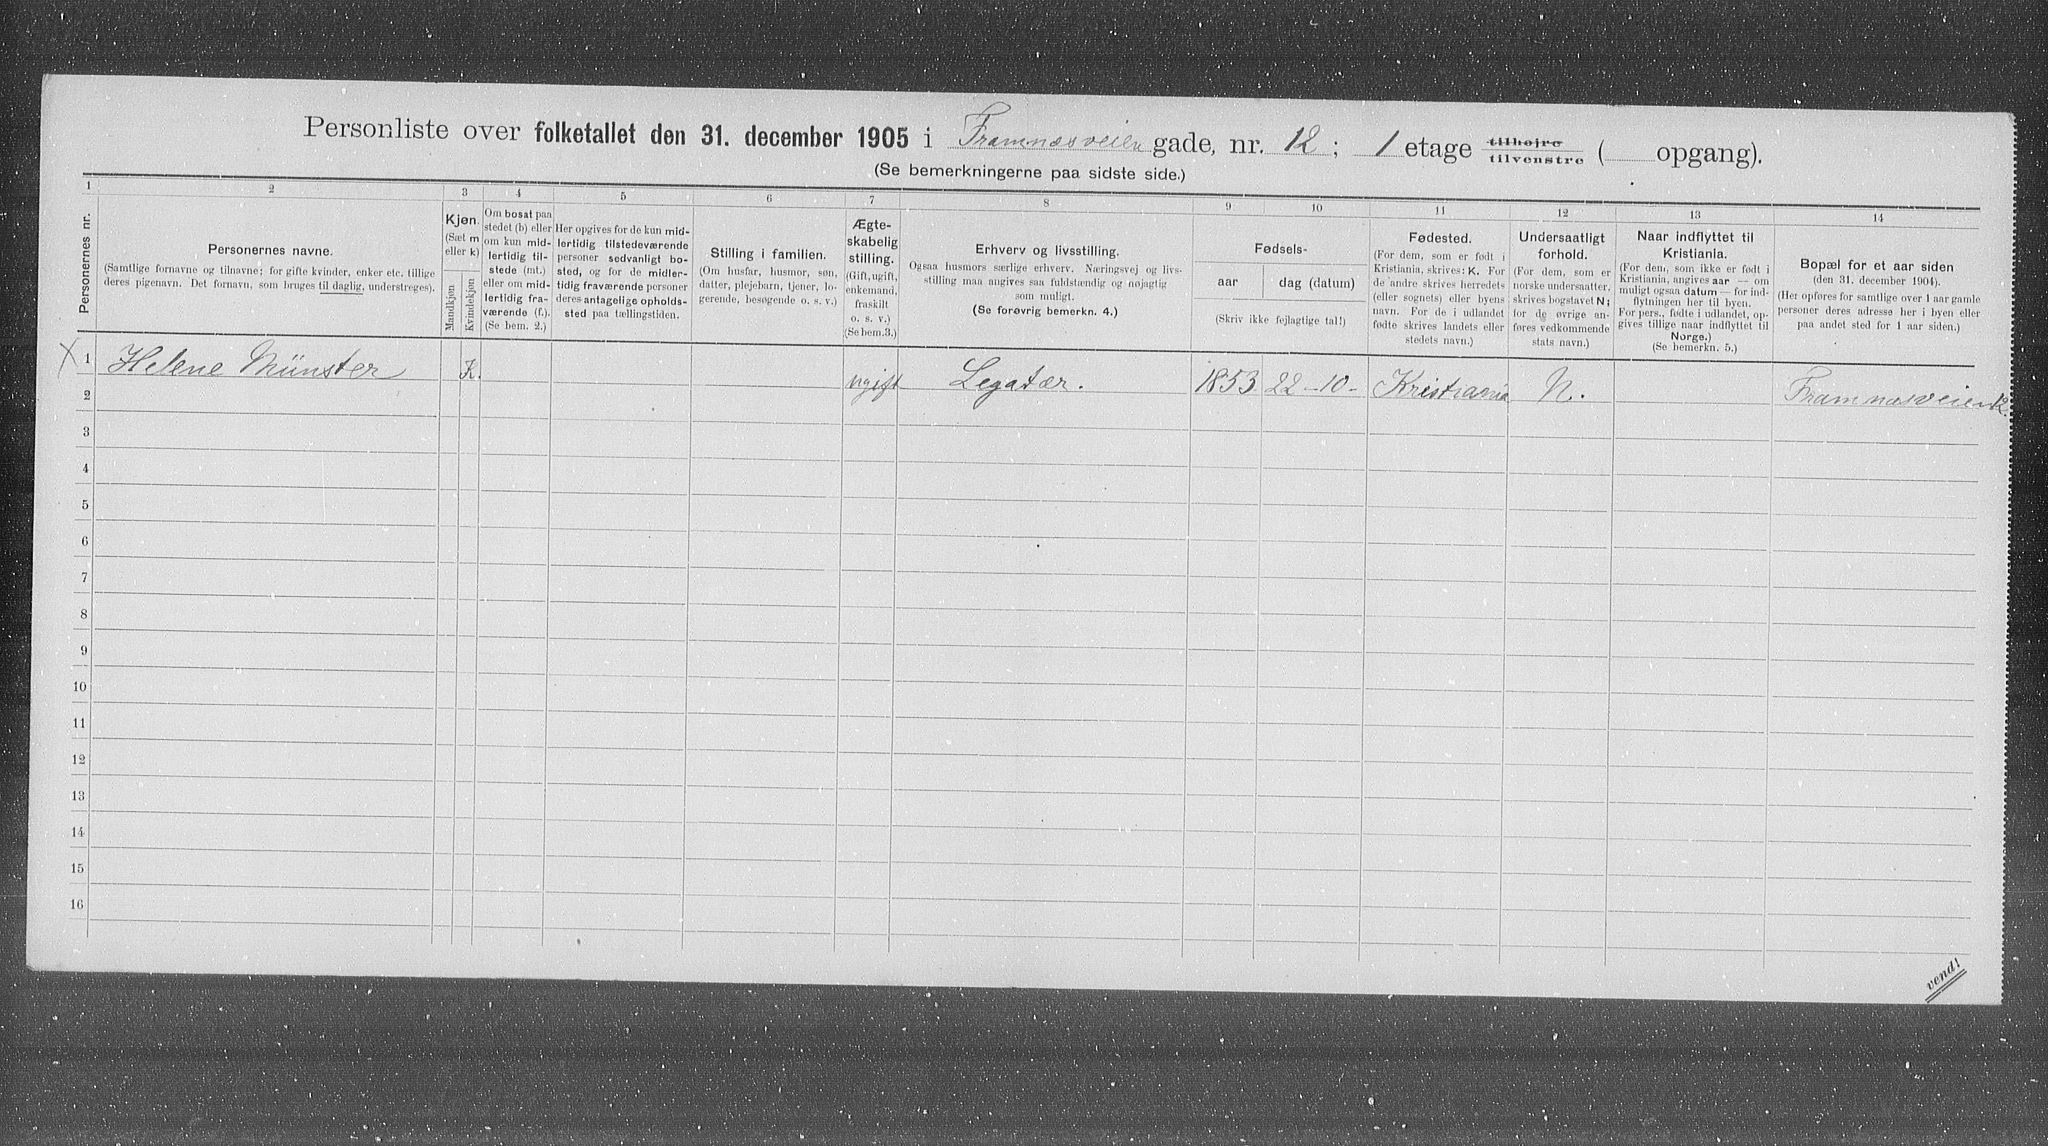 Personliste over folketallet den 31. december 1905 i Framnæsveien gade, nr. 12; 1 etage tilhøjre tilvenstre ( opgang).
(Se bemerkningerne paa sidste side.)
1 2 3 4 5 6 7 8 9 10 11 12 13 14
Personernes nr.
Personernes navne.
(Samtlige fornavne og tilnavne; for gifte kvinder, enker etc. tillige
deres pigenavn. Det fornavn, som bruges til daglig, understreges).
Kjøn.
(Sæt m
eller k)
Mandkjøn
Kvindekjøn
Om bosat paa
stedet (b) eller
om kun mid-
lertidig til-
stede (mt.)
eller om mid-
lertidig fra-
værende (f.).
(Se bem. 2.)
Her opgives for de kun mid-
lertidig tilstedeværende
personer sedsvanligt bo-
sted, og for de midler-
tidig fraværende personer
deres antagelige opholds-
sted paa tællingstiden.
Stilling i familien.
(Om husfar, husmor, søn,
datter, plejebarn, tjener, lo-
gerende, besøgende o. s. v.)
Ægte-
skabelig
stilling.
(Gift, ugift,
enkemand,
fraskilt
o. s. v.)
(Se bem.3.)
Erhverv og livsstilling.
Ogsaa husmors særlige erhverv. Næringsvej og livs-
stilling maa angives saa fuldstændig og nøjagtig
som muligt.
(Se forøvrig bemerkn. 4.)
Fødsels-
aar
dag (datum)
(Skriv ikke fejlagtige tal!)
Fødested.
(For dem, som er født i
Kristiania, skrives: K. For
de andre skrives herredets
(eller sognets) eller byens
navn. For de i udlandet
fødte skrives landets eller
stedets navn.)
Undersaatligt
forhold.
(For dem, som er
norske undersaatter,
skrives bogstavet N;
for de øvrige an-
føres vedkommende
stats navn.)
Naar indflyttet til
Kristiania.
(For dem, som ikke er født i
Kristiania, angives aar — om
muligt ogsaa datum — for ind-
flytningen her til byen.
For pers., fødte i udlandet, op-
gives tillige naar indflyttet til
Norge.)
(Se bemerkn. 5.)
Bopæl for et aar siden
(den 31. december 1904).
(Her opføres for samtlige over 1 aar gamle
personer deres adresse her i byen eller
paa andet sted for 1 aar siden.)
X 1 Helene Münster K. ugift Legatær. 1853 22-10- Kristiania N. Framnæsveien 12.
2
3
4
5
6
7
8
9
10
11
12
13
14
15
16
vend!